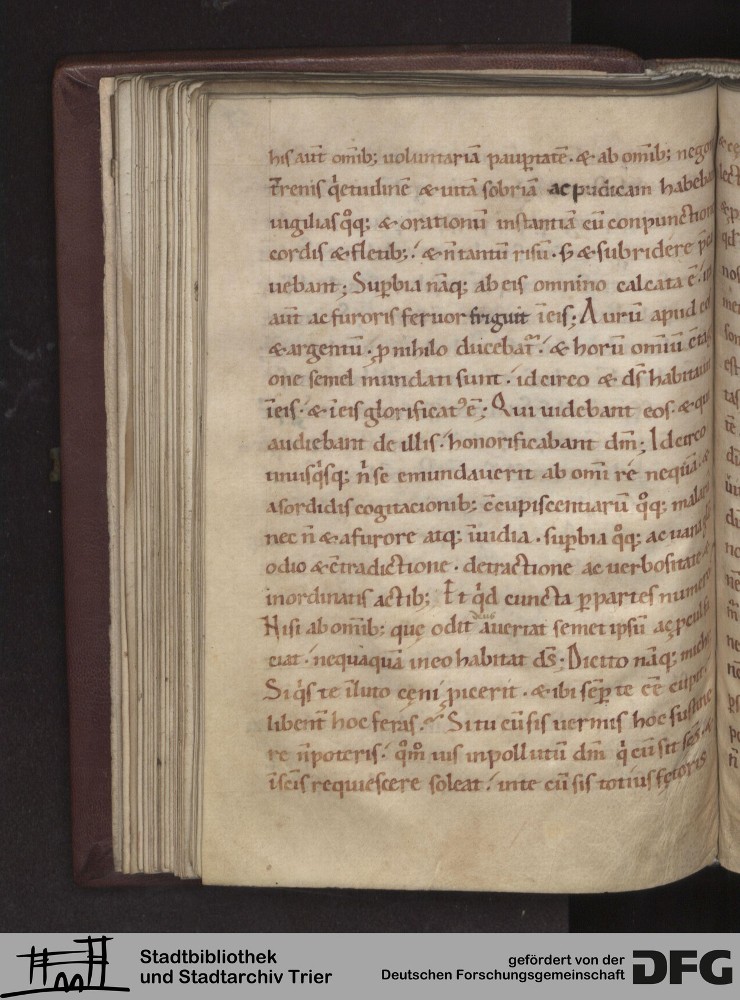 his aūt om̄ib; uoluntariā paup̱tatē. & ab om̄ib; nego
t̄renis q̇etudinē & uitā sobriā ac pudicam habeba
uigilias qͦq; & orationū instantiā cū conpunction
cordis & fletib;. & n̄ tantū risū. s; & subridere
uebant; Sup̱bia nāq; ab eis omnino calcata ē.
aūt ac furoris feruor friguit īeis; Aurū apud eo
& argentū. ꝓ nihilo ducebat̃. & horū omiū
one semel mundati sunt. idcirco & d̄s habitauit
īeis. & īeis glorificatꝰ ē; Qui uidebant eos. & qui
audiebant de illis. honorificabant dm̄; Idcirco
unusq̇sq; n̄ se emundauerit ab omi re nequā.
a sordidis cogitacionib; c̄cupiscentiarū qͦq; malarū
nec n̄ & a furore atq; īuidia. sup̱bia qͦq; ac uana
odio & c̄tradictione. detractione ac uerbositate
inordinatis actib; Et q̇d cuncta p̱ partes numero
Nisi ab om̄ib; quę odit deus auertat semet ipsū
ciat. nequaquā in eo habitat d̄s; Dic itto nāq; michi
Si q̇s te īluto cęni ꝓicerit. & ibi sēp̱ te
libent̄ hoc feras. Si tu cū sis uermis hoc sustine
re n̄ poteris. qͦm̄ uis inpollutū dm̄ q̇ cū sit sc̄s &
īsc̄is requiescere soleat. inte cū sis totius fętoris
Stadtbibliothek
und Stadtarchiv Trier
gefördert von der
Deutschen Forschungsgemeinschaft
DFG